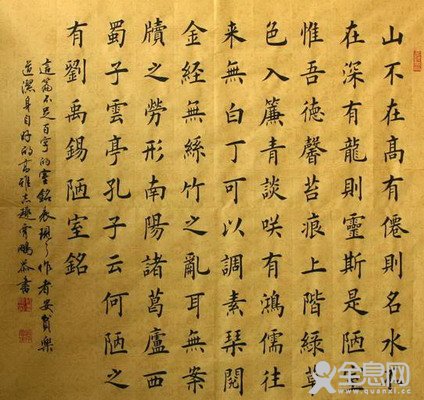 山不在高有僊則名水不
在深有龍則靈斯是陋室
惟吾德馨苔痕上階綠草
色入簾青談咲有鴻儒往
来無白丁可以調素琴閱
金経無絲竹之亂耳無案
牘之勞形南陽諸葛廬西
蜀子雲亭孔子云何陋之
有劉禹錫陋室銘
這篇不足百字的室銘表現了作者安貧樂
道潔身自好的高雅志趣鵬恭書
全息网